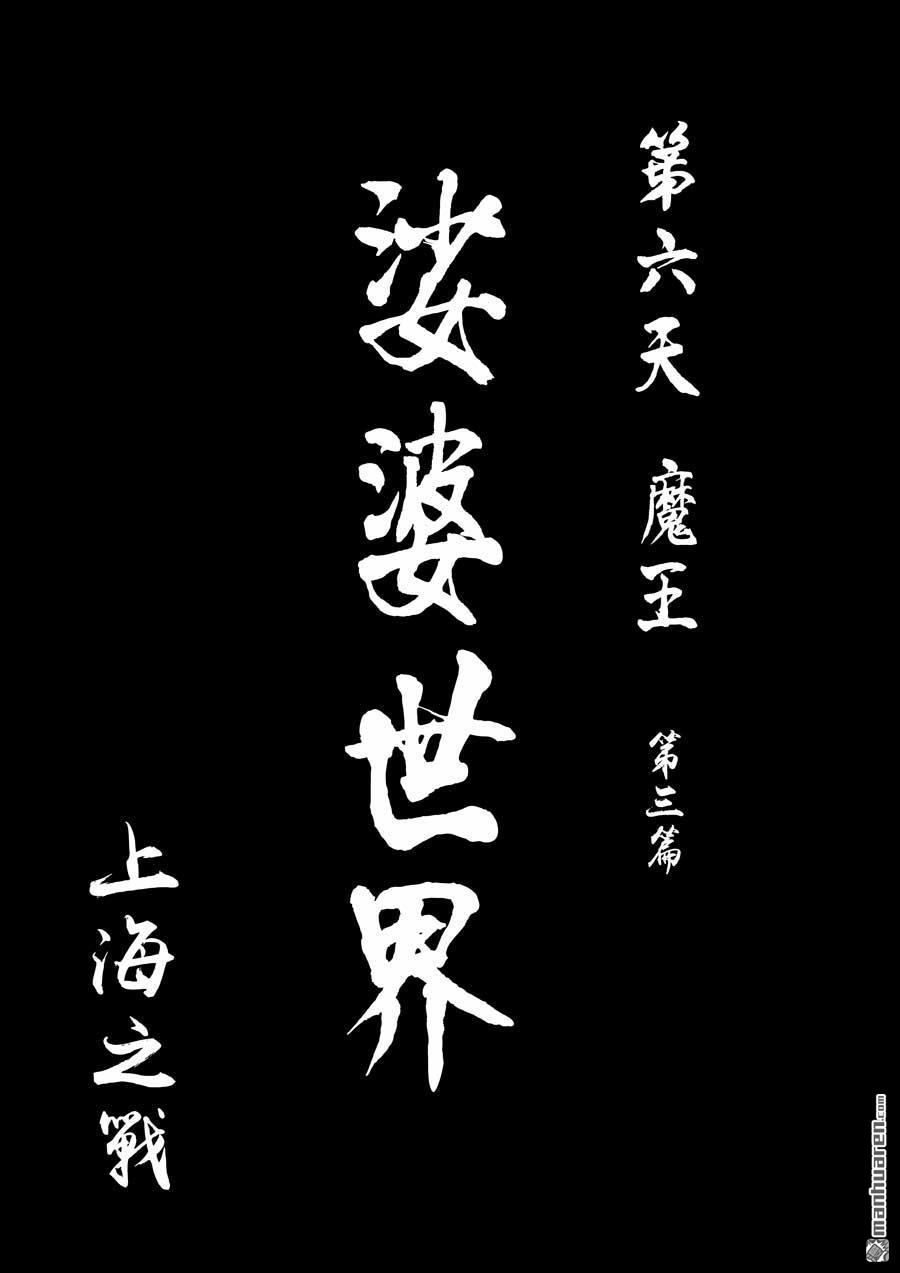 第六天 魔王 第三篇
娑婆世界
上海之戰
manhuaren.com